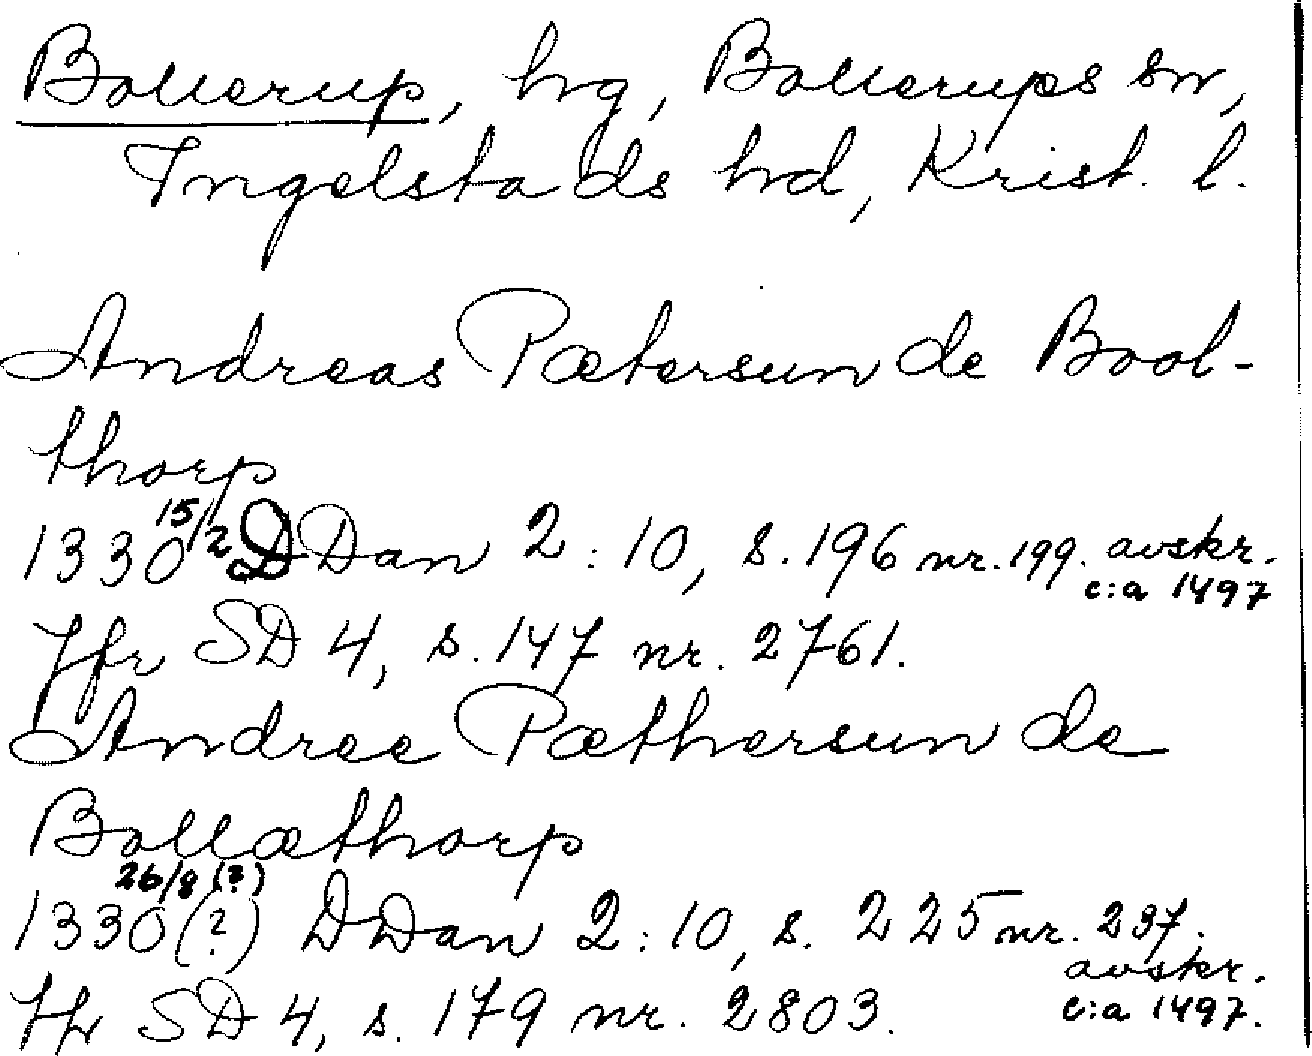 Bollerup, hg, Bollerups sn,
Ingelstads hd, Krist. l.
Andreas Pætersun de Bool-
thorp
1330 15/2 DDan 2:10, s. 196 nr. 199. avskr.
c:a 1497
Jfr SD 4, s. 147 nr. 2761.
Andree Pæthersun de
Bollæthorp
26/8 (?)
1330(?) DDan 2:10, s. 225 nr. 237.
avskr.
Jfr SD 4, s. 179 nr. 2803. c:a 1497.